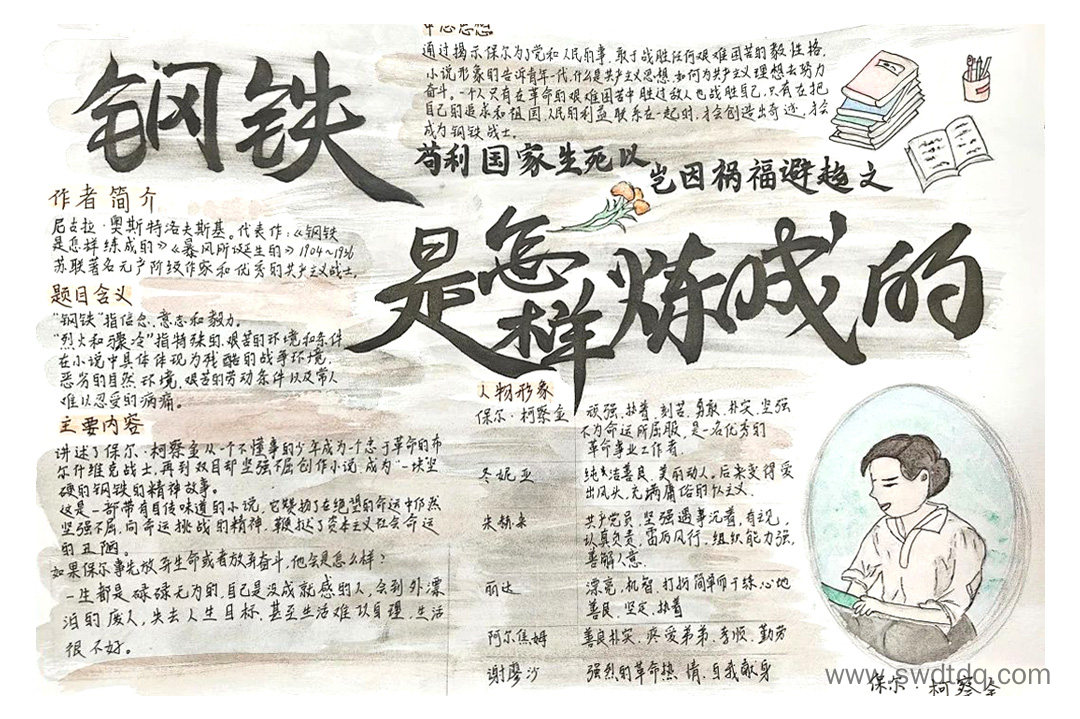 钢铁
是怎样炼成的
中心思想
通过揭示保尔为了党和人民的事，敢于战胜任何艰难困苦的毅性格，
小说形象的告诉青年一代，什么是共产主义思想，如何为共产主义理想去努力
奋斗。一个人只有在革命的艰难困苦中胜过敌人也战胜自己，只有在把
自己的追求和祖国，人民的利益联系在一起时，才会创造出奇迹，才会
成为钢铁战士。
苟利国家生死以
岂因祸福避趋文
作者简介
尼古拉·奥斯特洛夫斯基。代表作：《钢铁
是怎样练成的》《暴风所诞生的》1904~1936
苏联著名无产阶级作家和优秀的共产主义战士。
题目含义
“钢铁”指信念，意志和毅力。
“烈火和骤冷”指特殊的，艰苦的环境和条件
在小说中具体体现为残酷的战争环境，
恶劣的自然环境，艰苦的劳动条件以及常人
难以忍受的病痛。
主要内容
讲述了保尔·柯察金从一个不懂事的少年成为一个忠于革命的布
尔什维克战士，再到双目却坚强不屈创作小说，成为一块坚
硬的钢铁的精神故事。
这是一部带有自传味道的小说，它赞扬了在绝望的命运中仍然
坚强不屈，向命运挑战的精神，鞭挞了资本主义社会命运
的丑陋。
如果保尔事先放弃生命或者放弃奋斗，他会是怎么样？
一生都是碌碌无为的，自己是没成就感的人，会到外漂
泊的废人，失去人生目标，甚至生活难以自理，生活
很不好。
人物形象
保尔·柯察金 顽强，执着，刻苦，勇敢，朴实，坚强
不为命运所屈服，是一名优秀的
革命事业工作者
冬妮亚 纯洁善良，美丽动人。后来变得爱
出风头，充满庸俗的个人主义。
朱赫来 共产党员，坚强遇事沉着，有主见，
认真负责，雷厉风行，组织能力强，
善解人意.
丽达 漂亮，机智，打扮简单而干练，心地
善良，坚定，执着
阿尔焦姆 善良朴实，疼爱弟弟，孝顺，勤劳
谢廖沙 强烈的革命热情，自我献身
保尔·柯察金
www.swdtdq.com